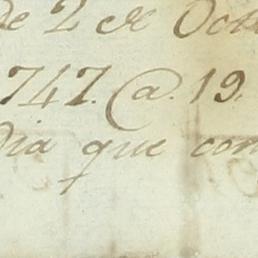 de 2 de Octu
747. @. 19.
Dia que con